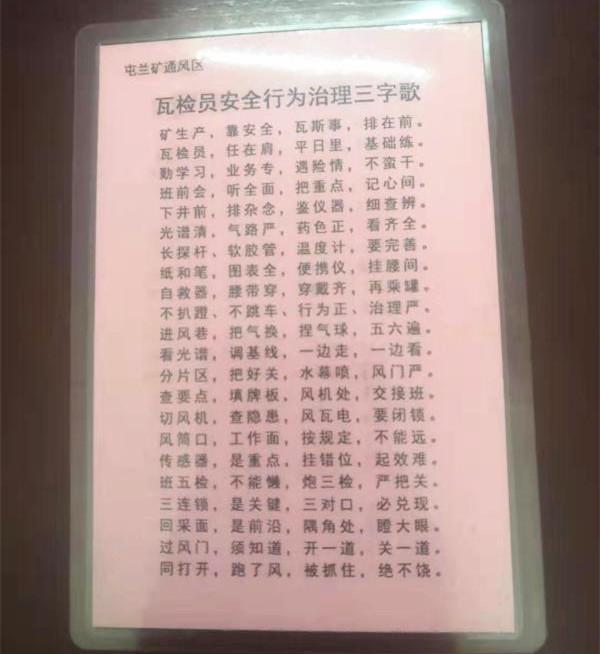 屯兰矿通风区
瓦检员安全行为治理三字歌
矿生产，靠安全，瓦斯事，排在前。
瓦检员，任在肩，平日里，基础练。
勤学习，业务专，遇险情，不蛮干。
班前会，听全面，把重点，记心间。
下井前，排杂念，鉴仪器，细查辨。
光谱清，气路严，药色正，看齐全。
长探杆、软胶管，温度计，要完善。
纸和笔，图表全，便携仪，挂腰间。
自救器，腰带穿，穿戴齐，再乘罐。
不扒蹬、不跳车、行为正、治理严。
进风巷，把气换，捏气球，五六遍。
看光谱，调基线，一边走，一边看。
分片区，把好关，水幕喷，风门严。
查要点，填牌板，风机处，交接班。
切风机，查隐患，风瓦电，要闭锁。
风筒口，工作面，按规定，不能远。
传感器，是重点，挂错位，起效难。
班五检，不能懒，炮三检，严把关。
三连锁，是关键，三对口，必兑现。
回采面，是前沿，隅角处，瞪大眼。
过风门，须知道，开一道，关一道。
同打开，跑了风，被抓住，绝不饶。